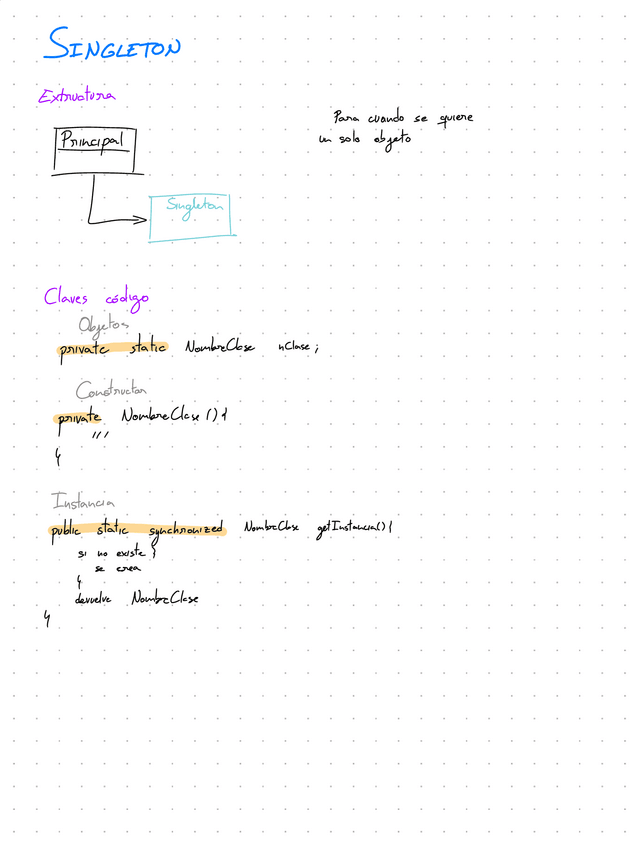 SINGLETON
Extructura
Para cuando se quiere
un solo objeto
Principal
Singleton
Claves código
Objetos
private static NombreClase nClase;
Constructor
private NombreClase () {
///
}
Instancia
public static synchronized NombreClase getInstancia() {
si no existe {
se crea
}
devuelve NombreClase
}